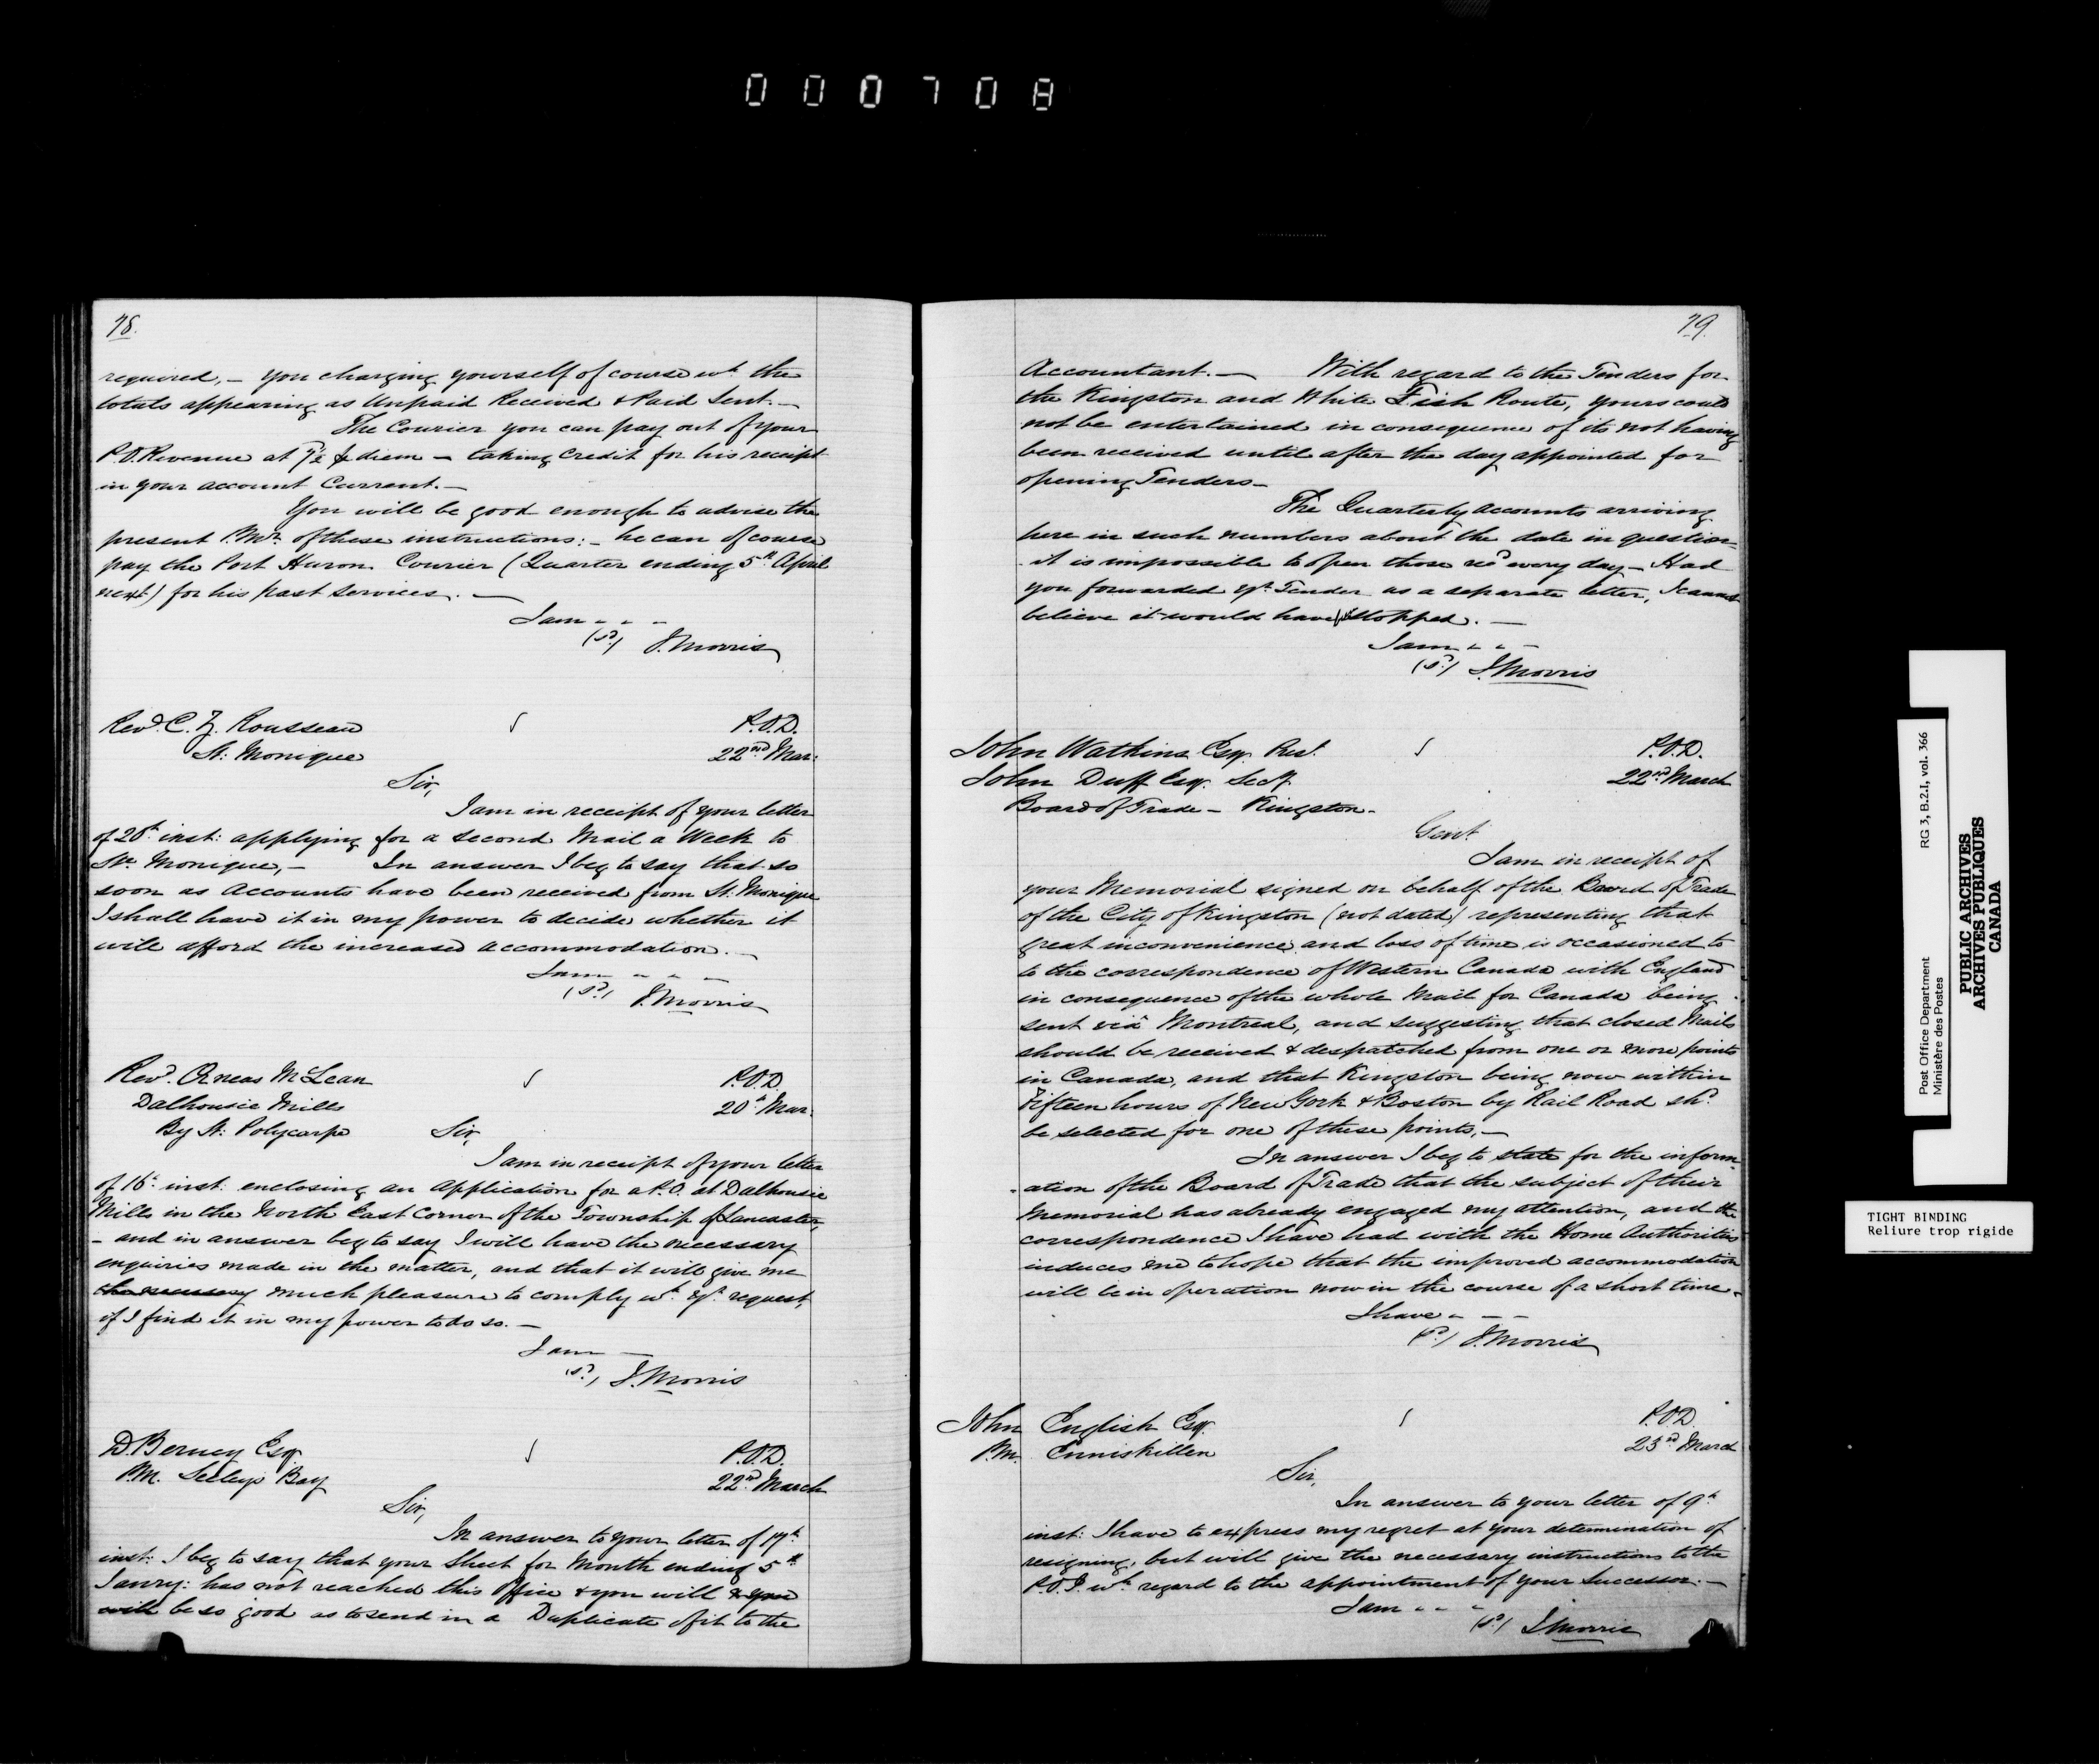 000708
78.
required, — you charging yourself of course wt. the
totals appearing as Unpaid Received & Paid Sent. —
The Courier you can pay out of your
P.O. Revenue at diem — taking credit for his receipt
in your account Current. —
You will be good enough to advise the
present P.Mr. of these instructions: — he can of course
pay the Port Huron Courier (Quarter ending 5th April
next) for his past services. —
I am - - -
(sd.) J. Morris
Revd. C. Z. Rousseau
St. Monique
P.O.D.
22nd Mar:
Sir,
I am in receipt of your letter
of 20th inst: applying for a second Mail a Week to
Ste. Monique, — In answer I beg to say that so
soon as Accounts have been received from St. Monique
I shall have it in my power to decide whether it
will afford the increased accommodation. —
I am - - -
(sd.) J. Morris
Revd. Æneas McLean
Dalhousie Mills
By St. Polycarpe
P.O.D.
20th Mar.
Sir,
I am in receipt of your letter
of 16th inst: enclosing an Application for a P.O. at Dalhousie
Mills in the North East Corner of the Township of Lancaster,
— and in answer beg to say I will have the necessary
enquiries made in the matter, and that it will give me
the necessary much pleasure to comply wt. yr. request,
if I find it in my power to do so. —
I am —
(sd.) J. Morris
D. Berney Esq.
P.M. Seeleys Bay
P.O.D.
22nd March
Sir,
In answer to your letter of 17th
inst: I beg to say that your Sheet for Month ending 5th
Janry: has not reached this Office & you will & you
will be so good as to send in a Duplicate of it to the
79.
Accountant. — With regard to the Tenders for
the Kingston and White Fish Route, yours could
not be entertained in consequence of its not having
been received until after the day appointed for
opening Tenders —
The Quarterly accounts arriving
here in such numbers about the date in question
it is impossible to open those recd. every day — Had
you forwarded yr. Tender as a separate letter, I cannot
believe it would have stopped. —
I am - - -
(sd.) J. Morris
John Watkins Esq. Prest.
John Duff Esq. Secy.
Board of Trade — Kingston.
P.O.D.
22nd March
Gent.
I am in receipt of
your Memorial signed on behalf of the Board of Trade
of the City of Kingston (not dated) representing that
great inconvenience and loss of time is occasioned to
to the correspondence of Western Canada with England
in consequence of the whole Mail for Canada being
sent viâ Montreal, and suggesting that closed Mails
should be received & despatched from one or more points
in Canada, and that Kingston being now within
Fifteen hours of New York & Boston by Rail Road shd.
be selected for one of these points, —
In answer I beg to state for the inform-
-ation of the Board of Trade that the subject of their
Memorial has already engaged my attention, and the
correspondence I have had with the Home Authorities
induces me to hope that the improved accommodation
will be in operation now in the course of a short time. -
I have - - -
(sd.) J. Morris
John English Esq.
P.M. Enniskillen
P.O.D.
23rd March
Sir,
In answer to your letter of 9th
inst: I have to express my regret at your determination of
resigning, but will give the necessary instructions to the
P.O.I. wt. regard to the appointment of your Successor. —
I am - - -
(sd.) J. Morris
Post Office Department RG 3, B.2.I, vol. 366
Ministère des Postes
PUBLIC ARCHIVES
ARCHIVES PUBLIQUES
CANADA
TIGHT BINDING
Reliure trop rigide